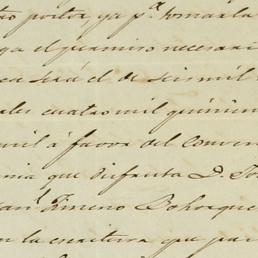 tro postor, ya p.ª tomarla
ga el permiso necesari
ca será el de seis mil
ales cuatro mil quinien
mil á favor del Conven
nia que disfruta D. Jo
Jimeno Bohorque
n la escritura que pa